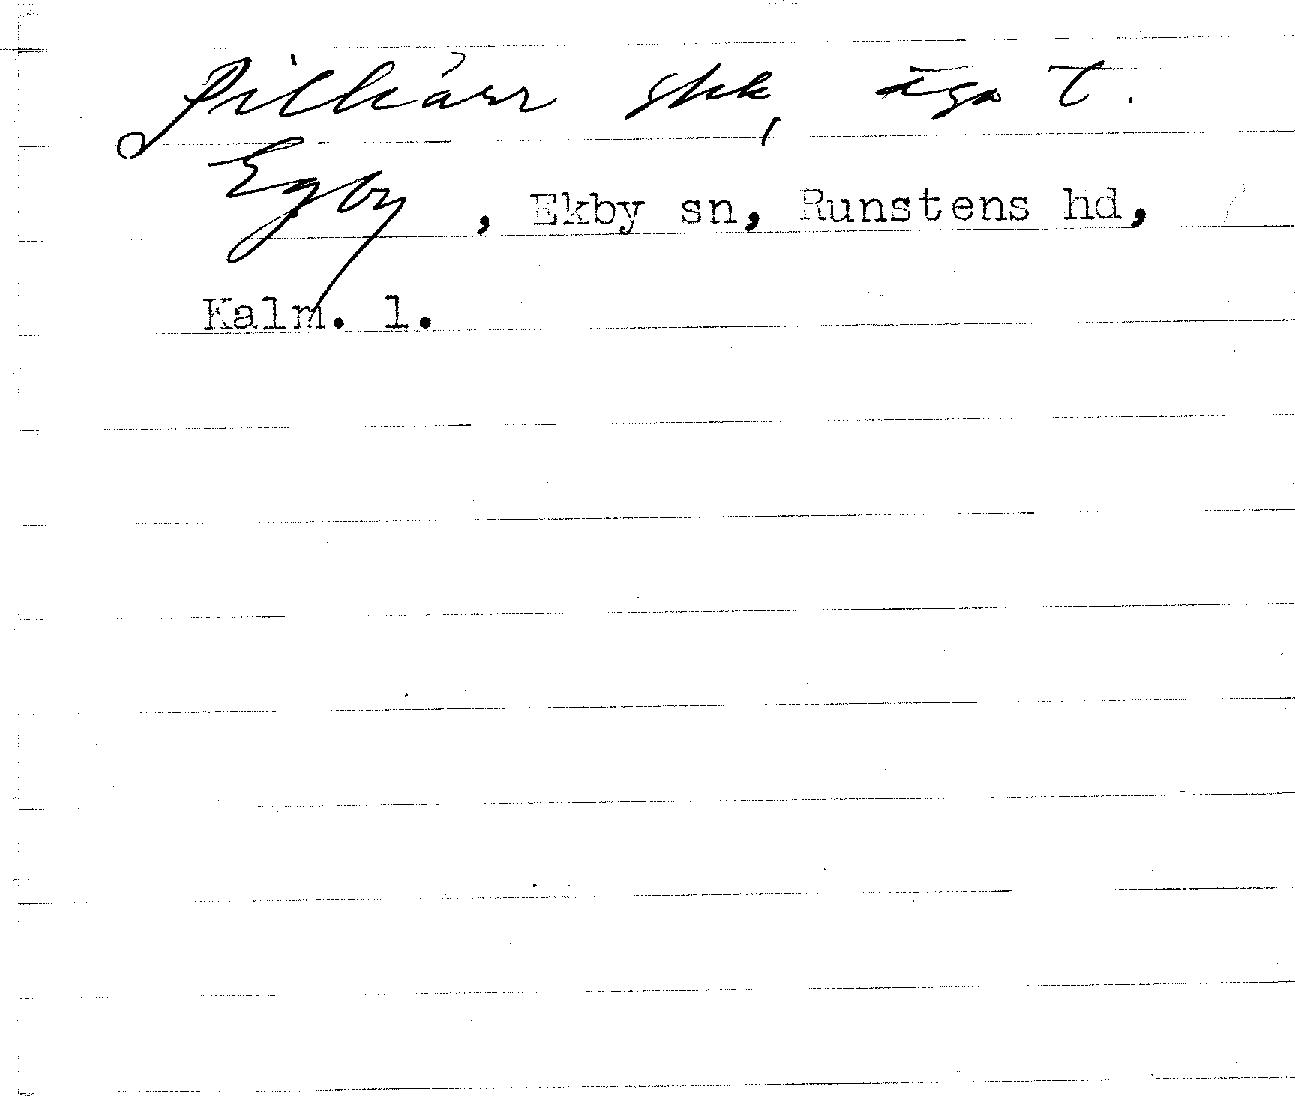 Pilkärr skk, äga t.
Egby, Ekby sn, Runstens hd,
Kalm. l.